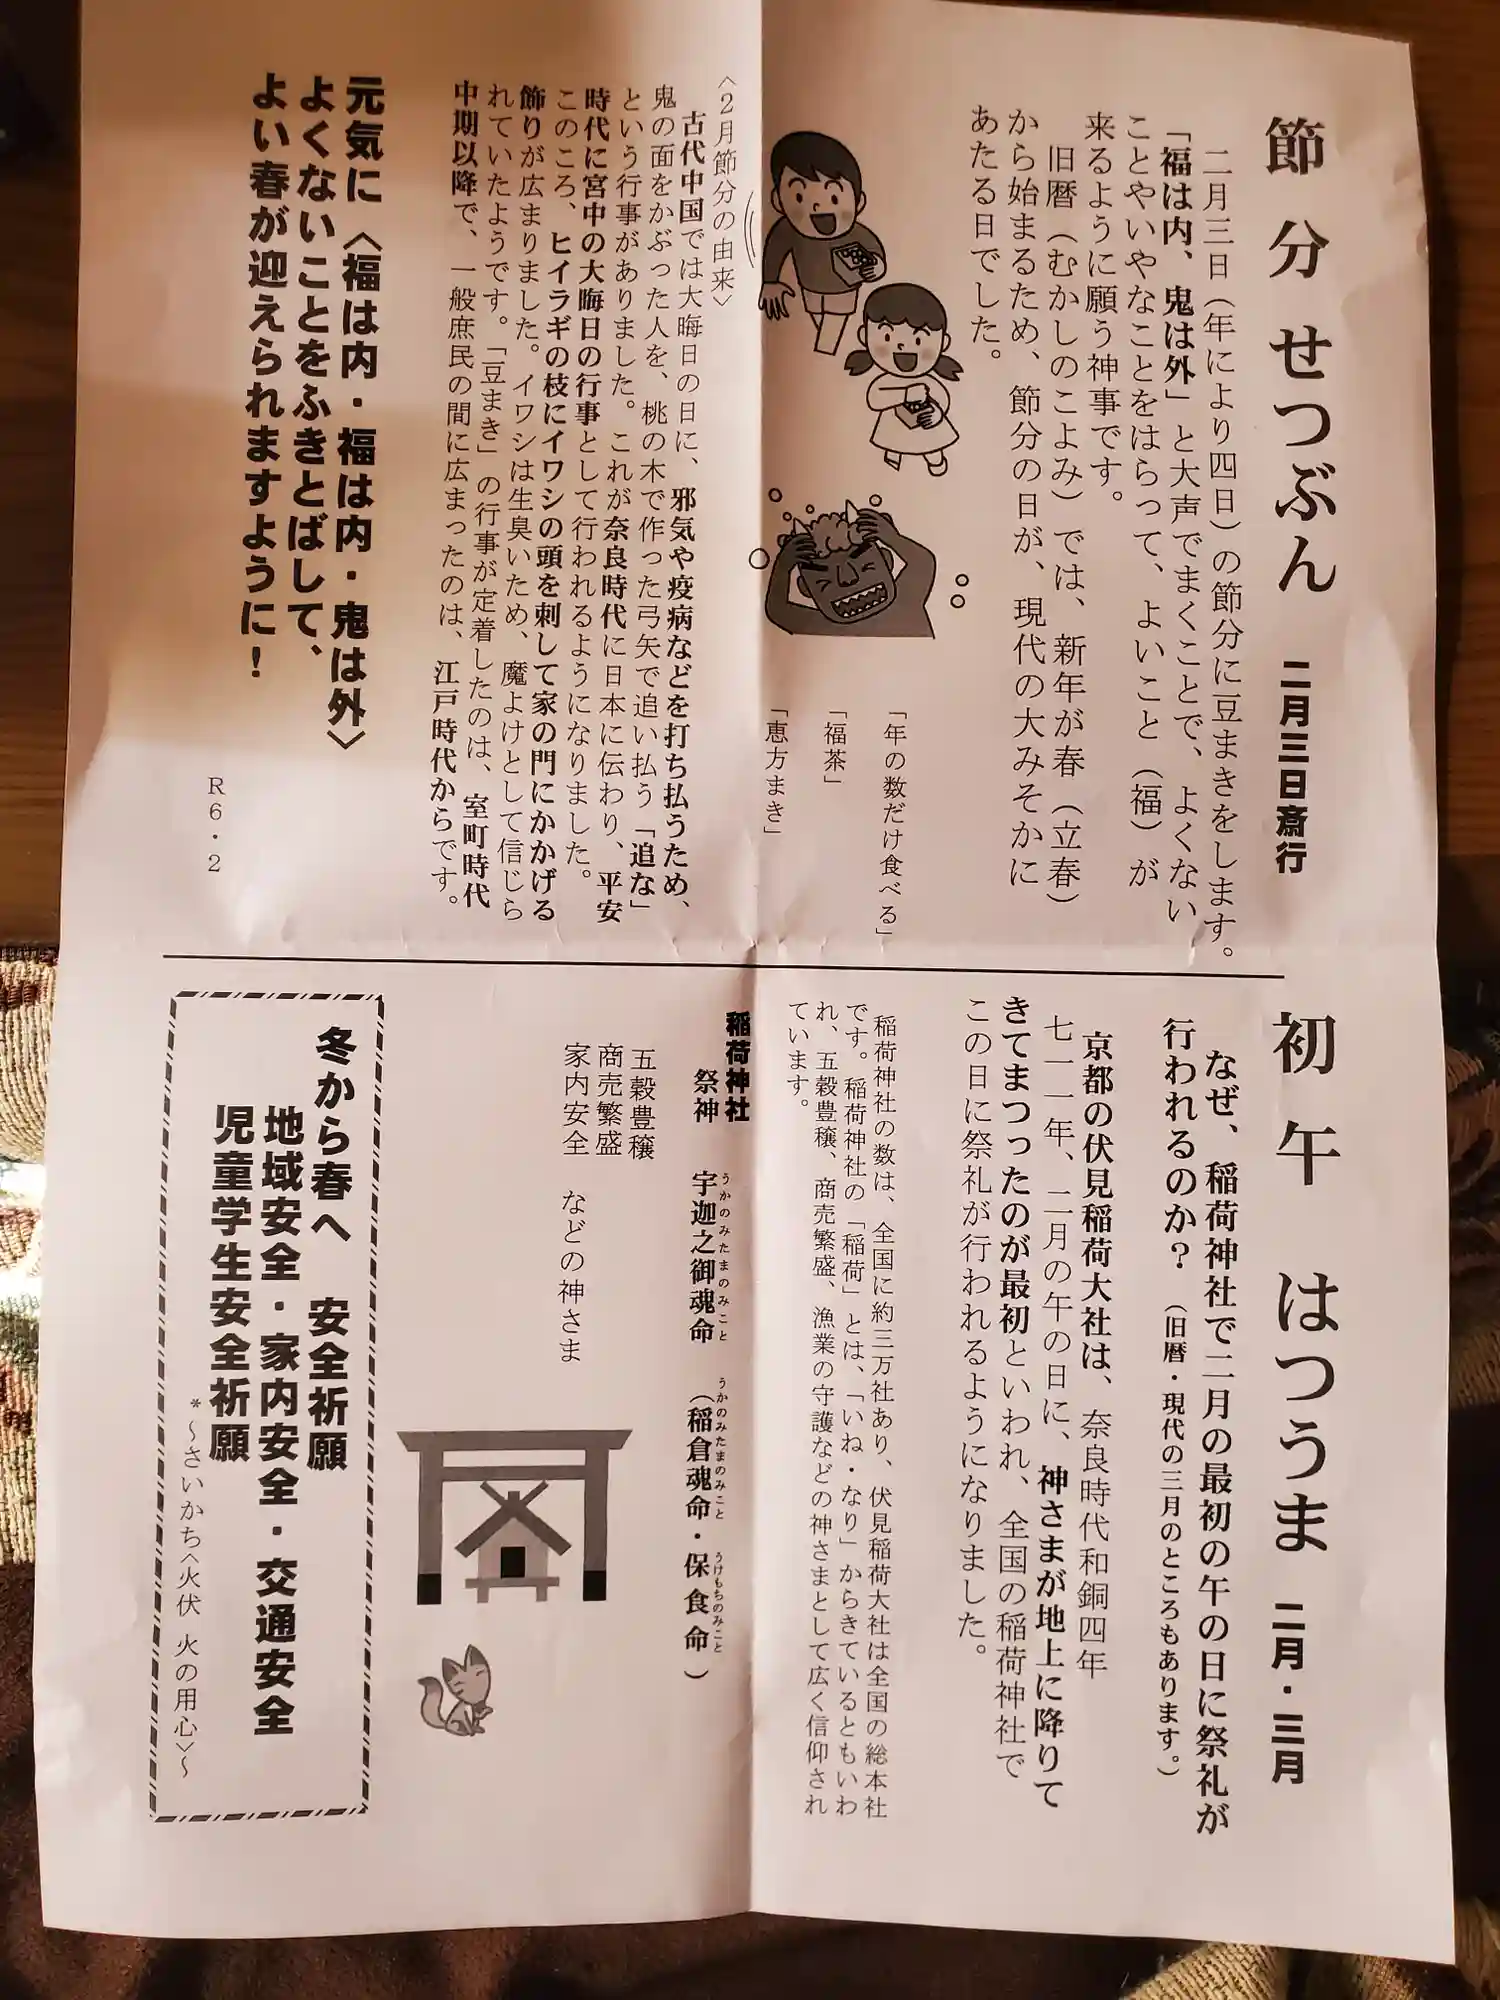 節分 せつぶん 二月三日斎行
二月三日(年により四日)の節分に豆まきをします。
「福は内、鬼は外」と大声でまくことで、よくない
ことやいやなことをはらって、よいこと(福)が
来るように願う神事です。
旧暦(むかしのこよみ)では、新年が春(立春)
から始まるため、節分の日が、現代の大みそかに
あたる日でした。
「年の数だけ食べる」
「福茶」
「恵方まき」
〈2月節分の由来〉
古代中国では大晦日の日に、邪気や疫病などを打ち払うため、
鬼の面をかぶった人を、桃の木で作った弓矢で追い払う「追な」
という行事がありました。これが奈良時代に日本に伝わり、平安
時代に宮中の大晦日の行事として行われるようになりました。
このころ、ヒイラギの枝にイワシの頭を刺して家の門にかかげる
飾りが広まりました。イワシは生臭いため、魔よけとして信じら
れていたようです。「豆まき」の行事が定着したのは、室町時代
中期以降で、一般庶民の間に広まったのは、江戸時代からです。
元気に〈福は内・福は内・鬼は外〉
よくないことをふきとばして、
よい春が迎えられますように!
R6・2
初午 はつうま 二月・三月
なぜ、稲荷神社で二月の最初の午の日に祭礼が
行われるのか?(旧暦・現代の三月のところもあります。)
京都の伏見稲荷大社は、奈良時代和銅四年
七一一年、二月の午の日に、神さまが地上に降りて
きてまつったのが最初といわれ、全国の稲荷神社で
この日に祭礼が行われるようになりました。
稲荷神社の数は、全国に約三万社あり、伏見稲荷大社は全国の総本社
です。稲荷神社の「稲荷」とは、「いね・なり」からきているともいわ
れ、五穀豊穣、商売繁盛、漁業の守護などの神さまとして広く信仰され
ています。
稲荷神社
うかのみたまのみこと うかのみたまのみこと うけもちのみこと
祭神 宇迦之御魂命(稲倉魂命・保食命)
五穀豊穣
商売繁盛
家内安全 などの神さま
冬から春へ 安全祈願
地域安全・家内安全・交通安全
児童学生安全祈願
*〜さいかち〈火伏 火の用心〉〜